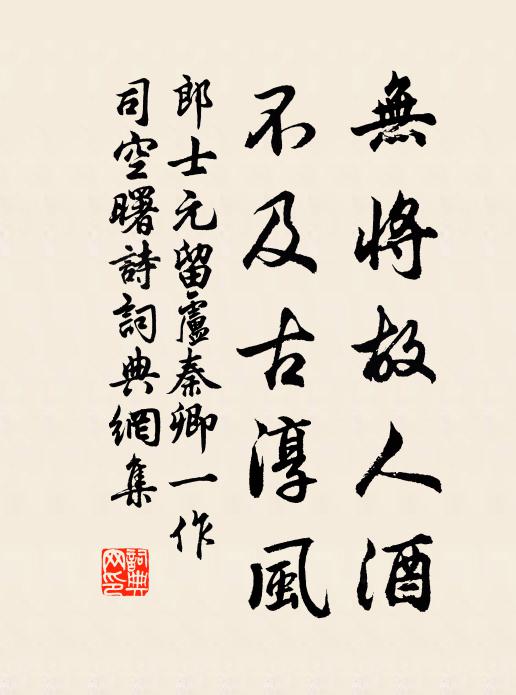 無將故人酒
不及古淳風
郎士元留盧秦卿一作
司空曙詩詞典網集
詞典網印